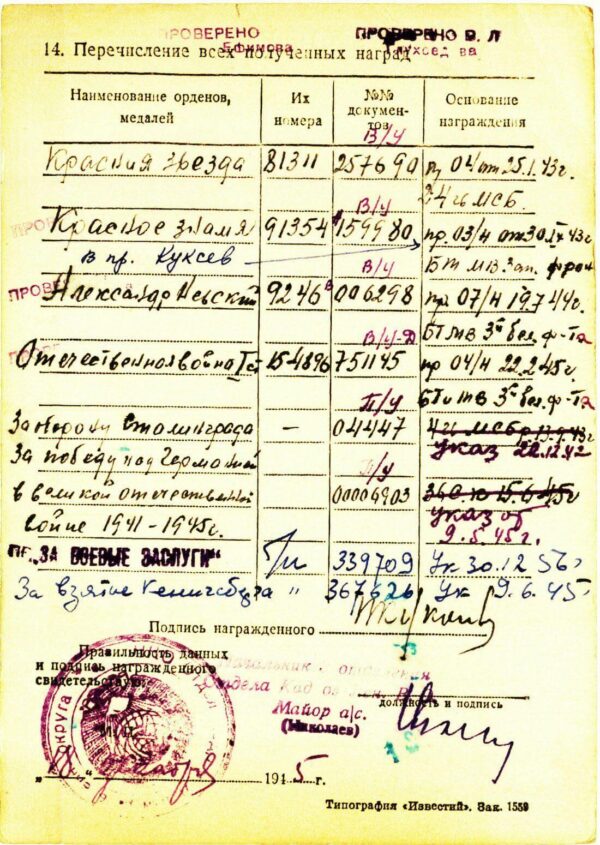 ПРОВЕРЕНО
Ефимова
ПРОВЕРЕНО В. Л
14. Перечисление всех полученных наград
Наименование орденов, медалей
Их номера
№№ документов
Основание награждения
В/У
Красная звезда 81311 257690 пр 04 от 25.1.43г.
В/У
Красное знамя 91354 159980 пр. 03/н от 30.IX 43г
в пр. Куксев
В/У
БТ МВ Зап. фрон
Александр Невский 9246 006298 пр 07/н 19.7.44г.
В/У-Д
БТ МВ 3й бел. ф-та
Отечественная война Iст 154896 751145 пр 04/н 22.2.45г.
П/У
БТ и МВ 3й бел. ф-та
За оборону Сталинграда – 04447
указ 22.12.42
За победу над Германией
П/У
в великой отечественной 0006903
войне 1941-1945г.
указ от
9.5.45г.
„ЗА БОЕВЫЕ ЗАСЛУГИ“ 339709 Ук 30.12 56г
За взятие Кенигсберга " 367626 Ук 9.6.45
Подпись награжденного
Правильность данных
и подпись награжденного
свидетельствую:
Майор а/с.
(Николаев)
должность и подпись
М.П.
округа
1945 г.
Типография «Известий». Зак. 1559